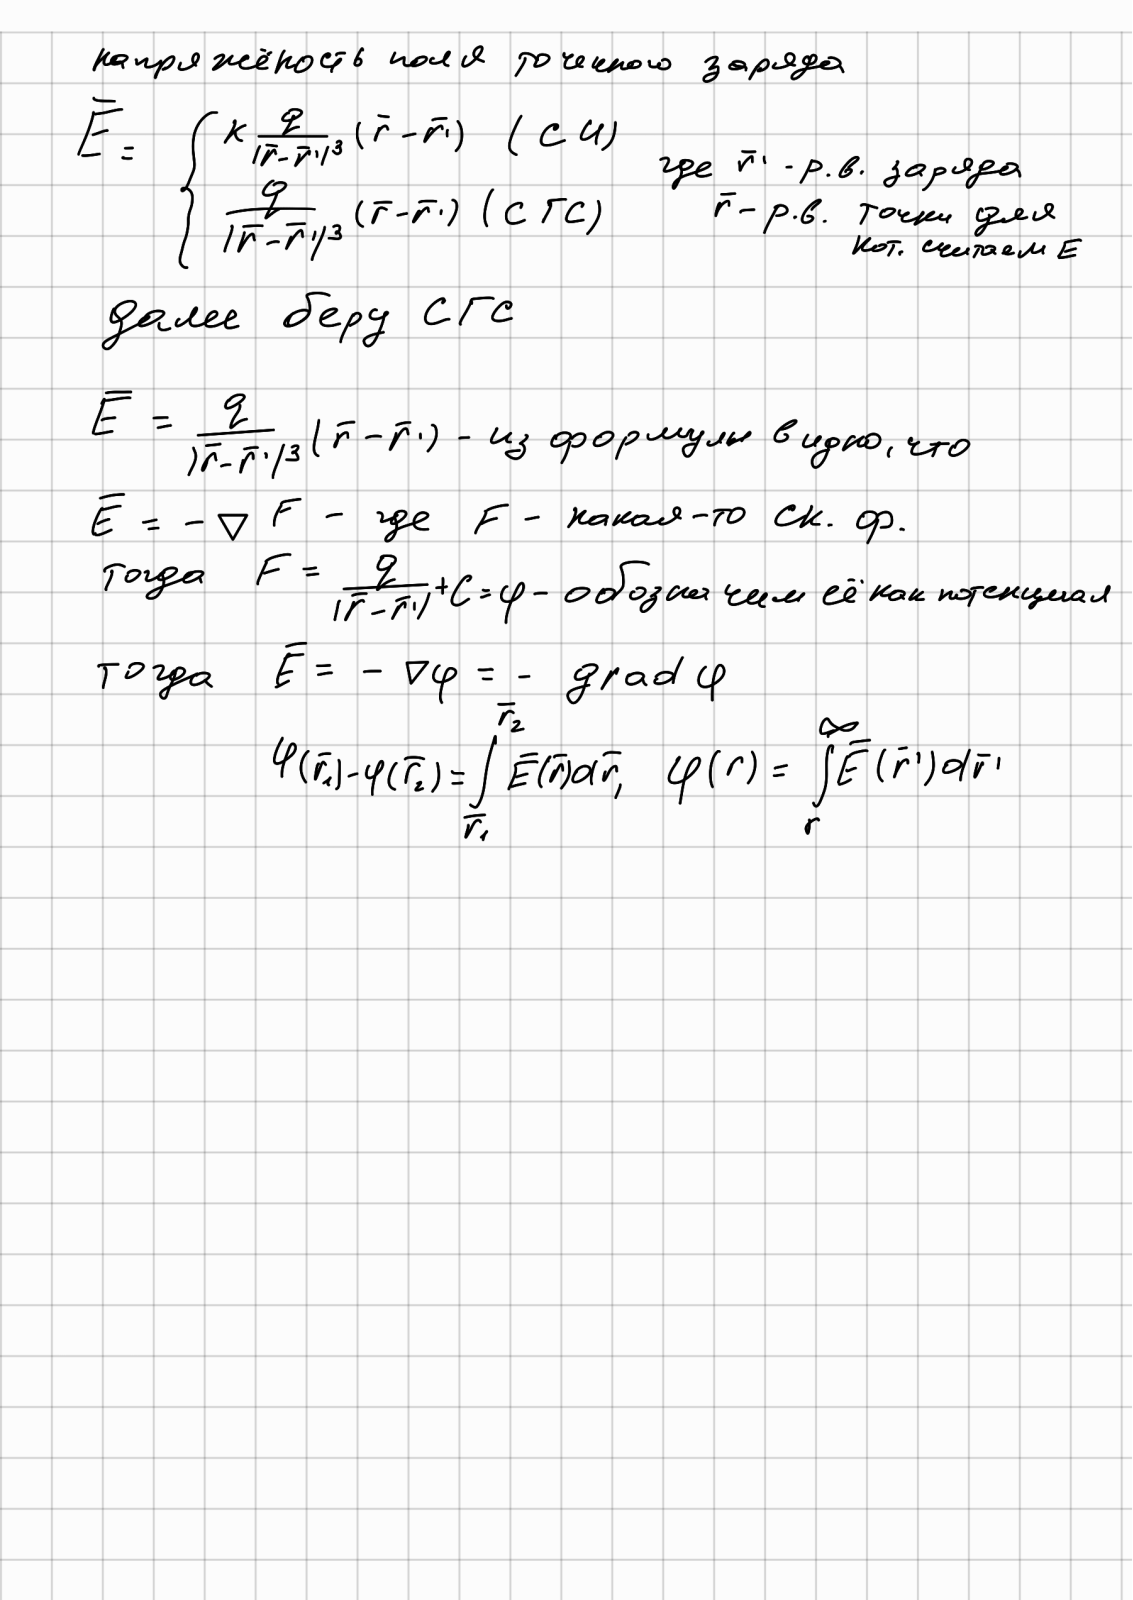 напряжёность поля точечного заряда
E̅ = { k q/|r̅-r̅'|³ (r̅-r̅') (СИ)
q/|r̅-r̅'|³ (r̅-r̅') (СГС)
где r̅' - р.в. заряда
r̅ - р.в. точки для
кот. считаем E
далее беру СГС
E̅ = q/|r̅-r̅'|³ (r̅-r̅') - из формулы видно, что
E̅ = -∇ F - где F - какая-то ск. ф.
тогда F = q/|r̅-r̅'| + C = φ - обозначим её как потенциал
тогда E̅ = -∇φ = - grad φ
φ(r̅₁)-φ(r̅₂) = ∫_{r̅₁}^{r̅₂} E̅(r̅)dr̅, φ(r) = ∫_{r}^{∞} E̅(r̅')dr̅'